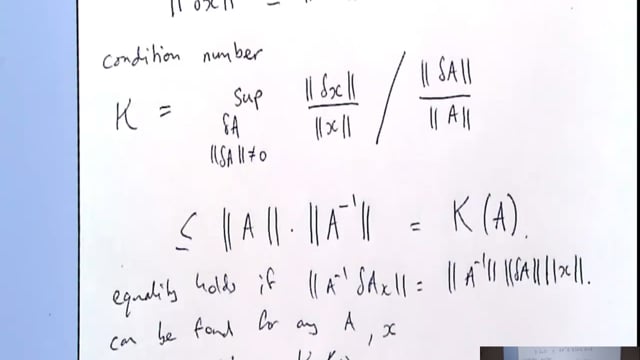 || δx ||
condition number
K = sup_{δA, ||δA||≠0} ||δx|| / ||x|| / ||δA|| / ||A||
≤ ||A|| · ||A⁻¹|| = K(A).
equality holds if ||A⁻¹ δAx|| = ||A⁻¹|| ||δA|| ||x||.
can be found for any A, x